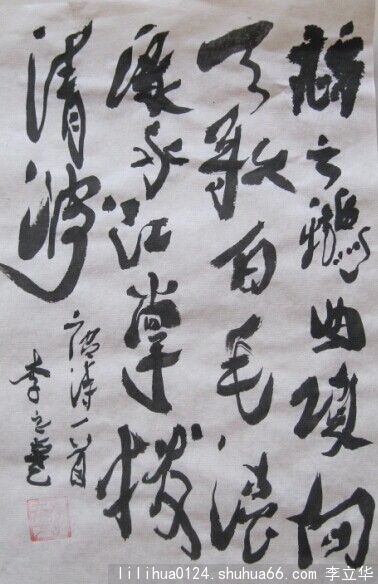 鹅鹅鹅曲项向
天歌白毛浮
绿水红掌拨
清波
唐诗一首
李立华
lilihua0124.shuhua66.com 李立华